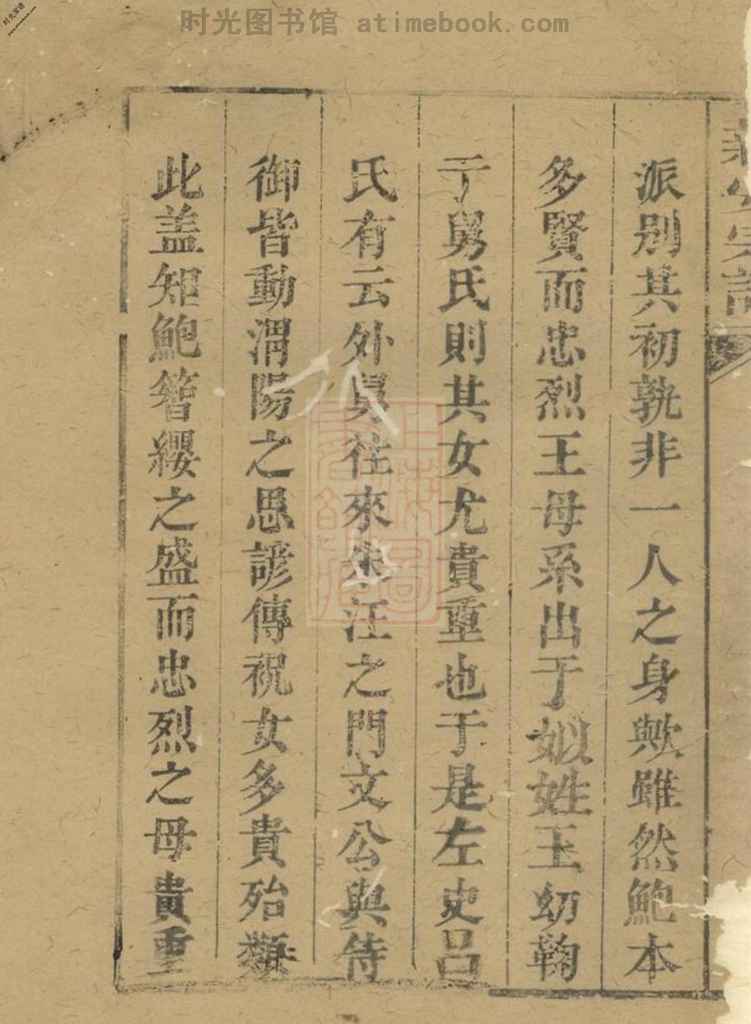 时光图书馆 atimebook.com
派别其初孰非一人之身歟雖然鮑本
多賢而忠烈王母系出于姒姓王幼鞠
于舅氏則其女尤貴重也于是左史呂
氏有云外舅往來朱汪之門文公與待
御皆動渭陽之思諺傳祝女多貴殆類
此盖知鮑簪纓之盛而忠烈之母貴重